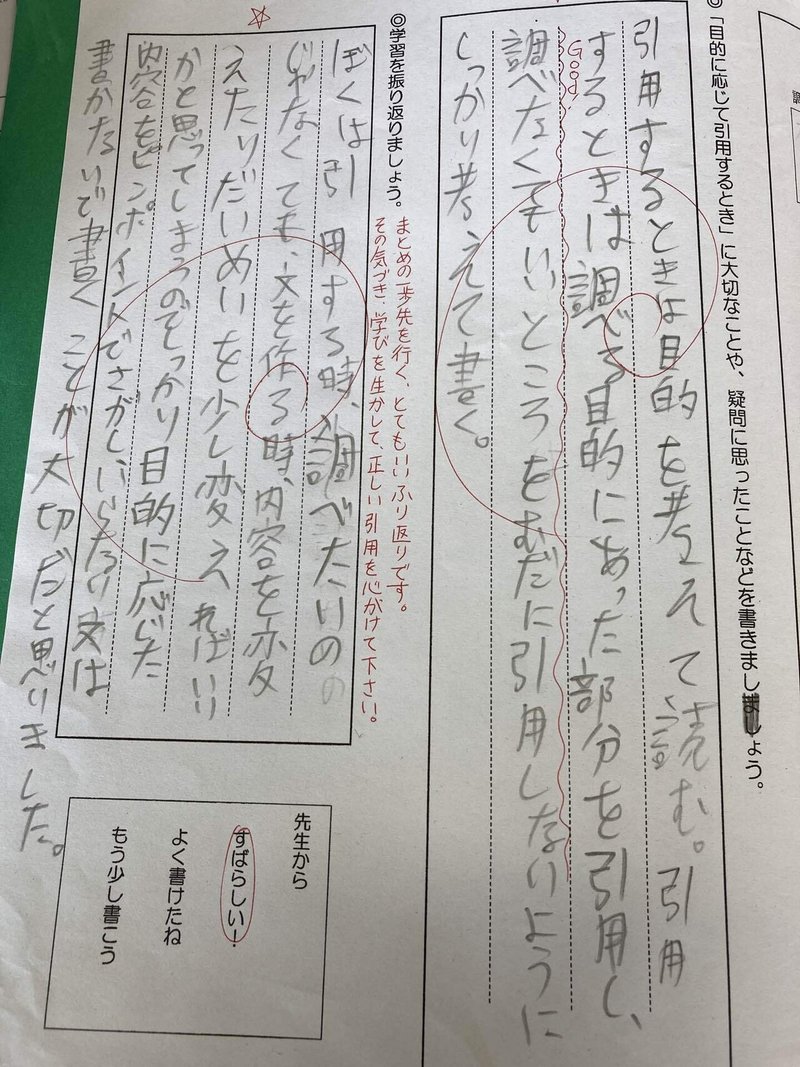 ◎「目的に応じて引用するとき」に大切なことや、疑問に思ったことなどを書きましょう。
引用するときは目的を考えて読む。引用
するときは調べる目的にあった部分を引用し、
Good!
調べなくてもいいところをむだに引用しないように
しっかり考えて書く。
◎学習を振り返りましょう。
まとめの一歩先を行く、とてもいいふり返りです。
その気づき、学びを生かして、正しい引用を心がけて下さい。
ぼくは引用する時、調べたいの
じゃなくても、文を作る時、内容を変
えたりだいめいを少し変えればいい
かと思ってしまうのでそっかり目的に応じた
内容をピンポイントでさがし、いらない文は
書かないで書くことが大切だと思いました。
先生から
すばらしい！
よく書けたね
もう少し書こう